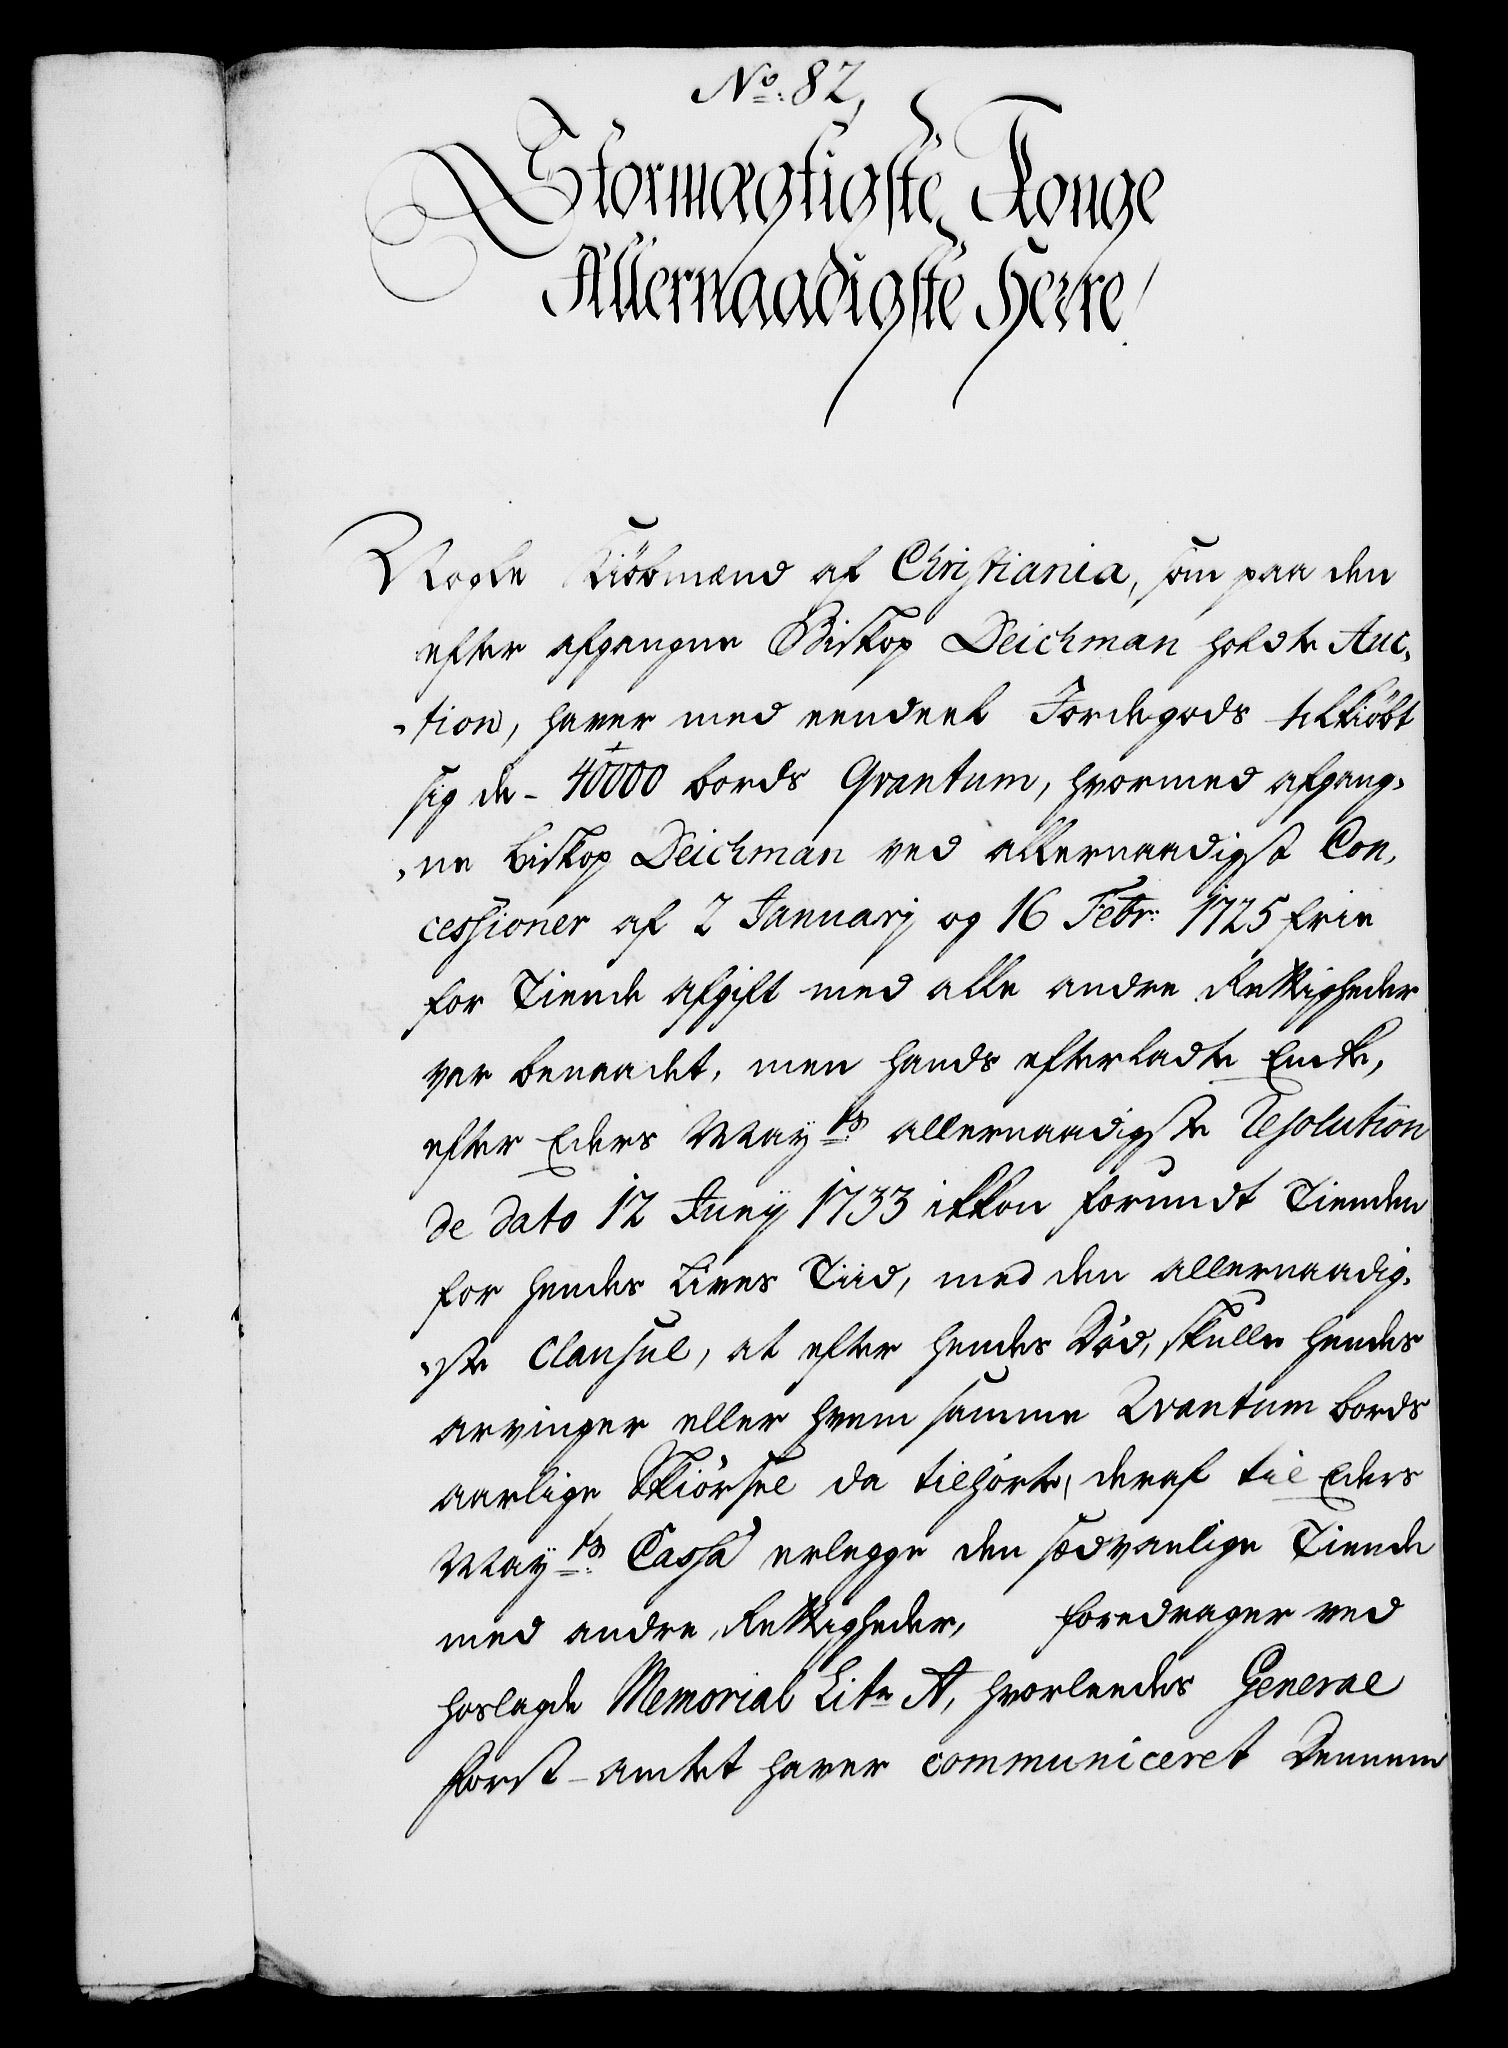 No: 82,
Stormægtigste Konge
Allernaadigste Herre!
Nogle Kiöbmænd af Christiania, som paa den
efter afgangne Biskop Deichman holdte Auc-
-tion, haver med eendeel Jordegods tilkiöbt
sig de - 40000 bords Qvantum, hvormed afgang-
-ne Biskop Deichman ved allernaadigst Con-
cessioner af 2 Januarij og 16 Febr: 1725 frie
for Tiende afgift med alle andre Rettigheder
var benaadet, men hands efterladte Encke,
efter Eders May:ts allernaadigste Resolution
de dato 12 Junij 1733 ikkon forundt Tienden
for hendes Lives Tiid, med den allernaadig-
-ste Clausul, at efter hendes Död, skulle hendes
arvinger eller hvem samme Qvantum bords
aarlige Skiörsel da tilhörte, deraf til Eders
May:ts Cassa erlegge den sædvanlige Tiende
med andre Rettigheder, foredrager ved
hoslagde Memorial Litr A, hvorleedes General
Forst-amtet haver communiceret Dennem